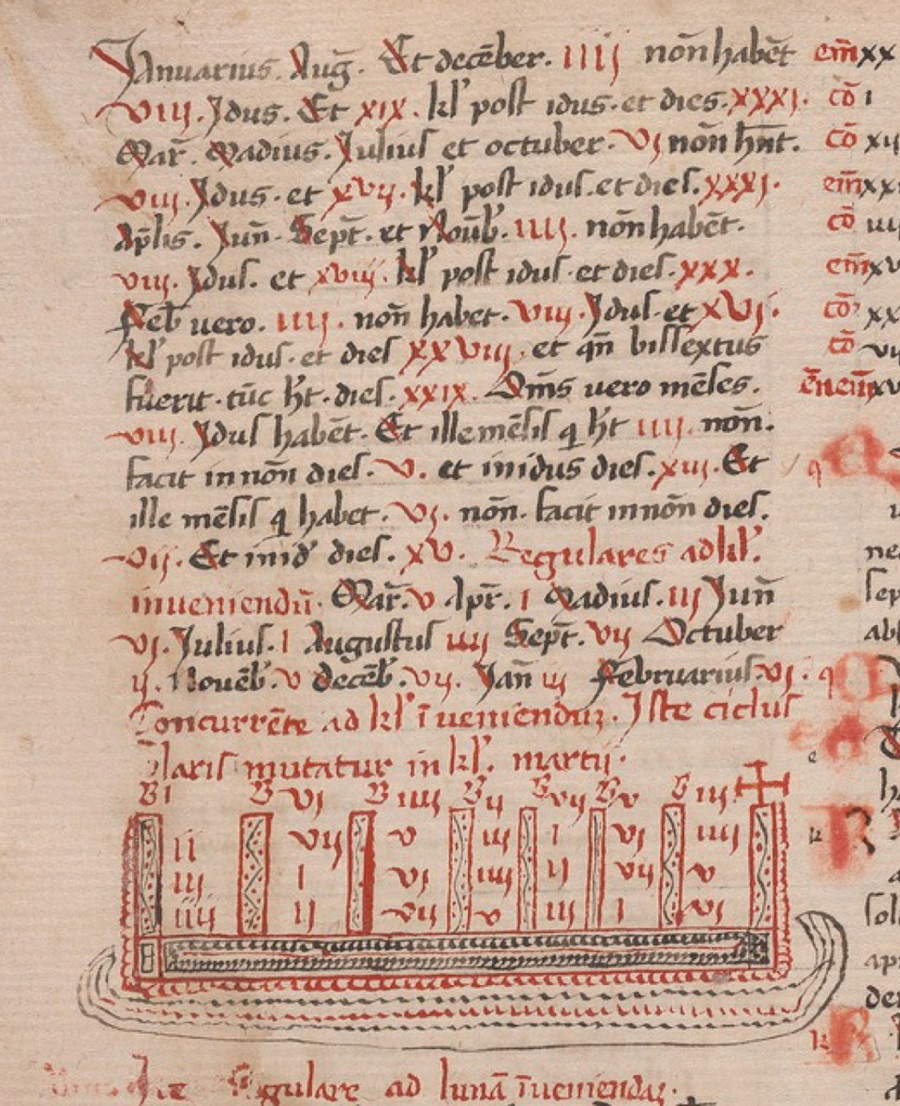 Januarius. Aug̃. Et decēber. IIIJ non̄ habēt
VIIJ. Jdus. Et XIX. kl' post idus. et dies. XXXJ.
Mar̃. Madius. Julius et octuber. VJ non̄ hn̄t.
VIIJ. Jdus. et XVIJ. kl' post idus. et dies. XXXJ.
Ap̃lis. Jun̄. Sept̃. et Noub̃. IIIJ. non̄ habēt.
VIIJ. Jdus. et XVIIJ. kl' post idus. et dies. XXX.
Feb̃ uero. IIIJ. non̄ habet. VIIJ. Jdus. et XVJ.
kl' post idus. et dies XXVIIJ. et qn̄ bissextus
fuerit. tūc h̃t. dies. XXIX. Om̄s uero mēses.
VIIJ. Jdus habēt. Et ille mēsis q h̃t IIIJ. non̄.
facit in non̄ dies. V. et in idus dies. XIIJ. Et
ille mēsis q habet. VJ. non̄. facit in non̄ dies.
VIJ. Et in id' dies. XV. Regulares ad kl'.
inueniendū. Mar̃. V Apr̃. I Madius. IIJ Jun̄
VJ. Julius. I Augustus IIIJ Sept̃. VIJ Octuber
IJ. Nouēb̃. V decēb̃. VIJ. Jan̄ IIJ Februarius. VJ.
Concurrēte ad kl' īueniendum. Jste ciclus
laris mutatur in kl'. martij.
B I B VJ B IIIJ B IJ B VIJ B V B IIJ
II VIJ V IIJ I VJ IIIJ
IIJ I VJ IIIJ II VIJ V
IIIJ II VIJ V IIJ I VJ
gulare ad lunā īueniendaz.
em̄ XX
cō I
cō XIJ
em̄ XX
cō
em̄ XV
cō XX
cō VIJ
em̄ XV